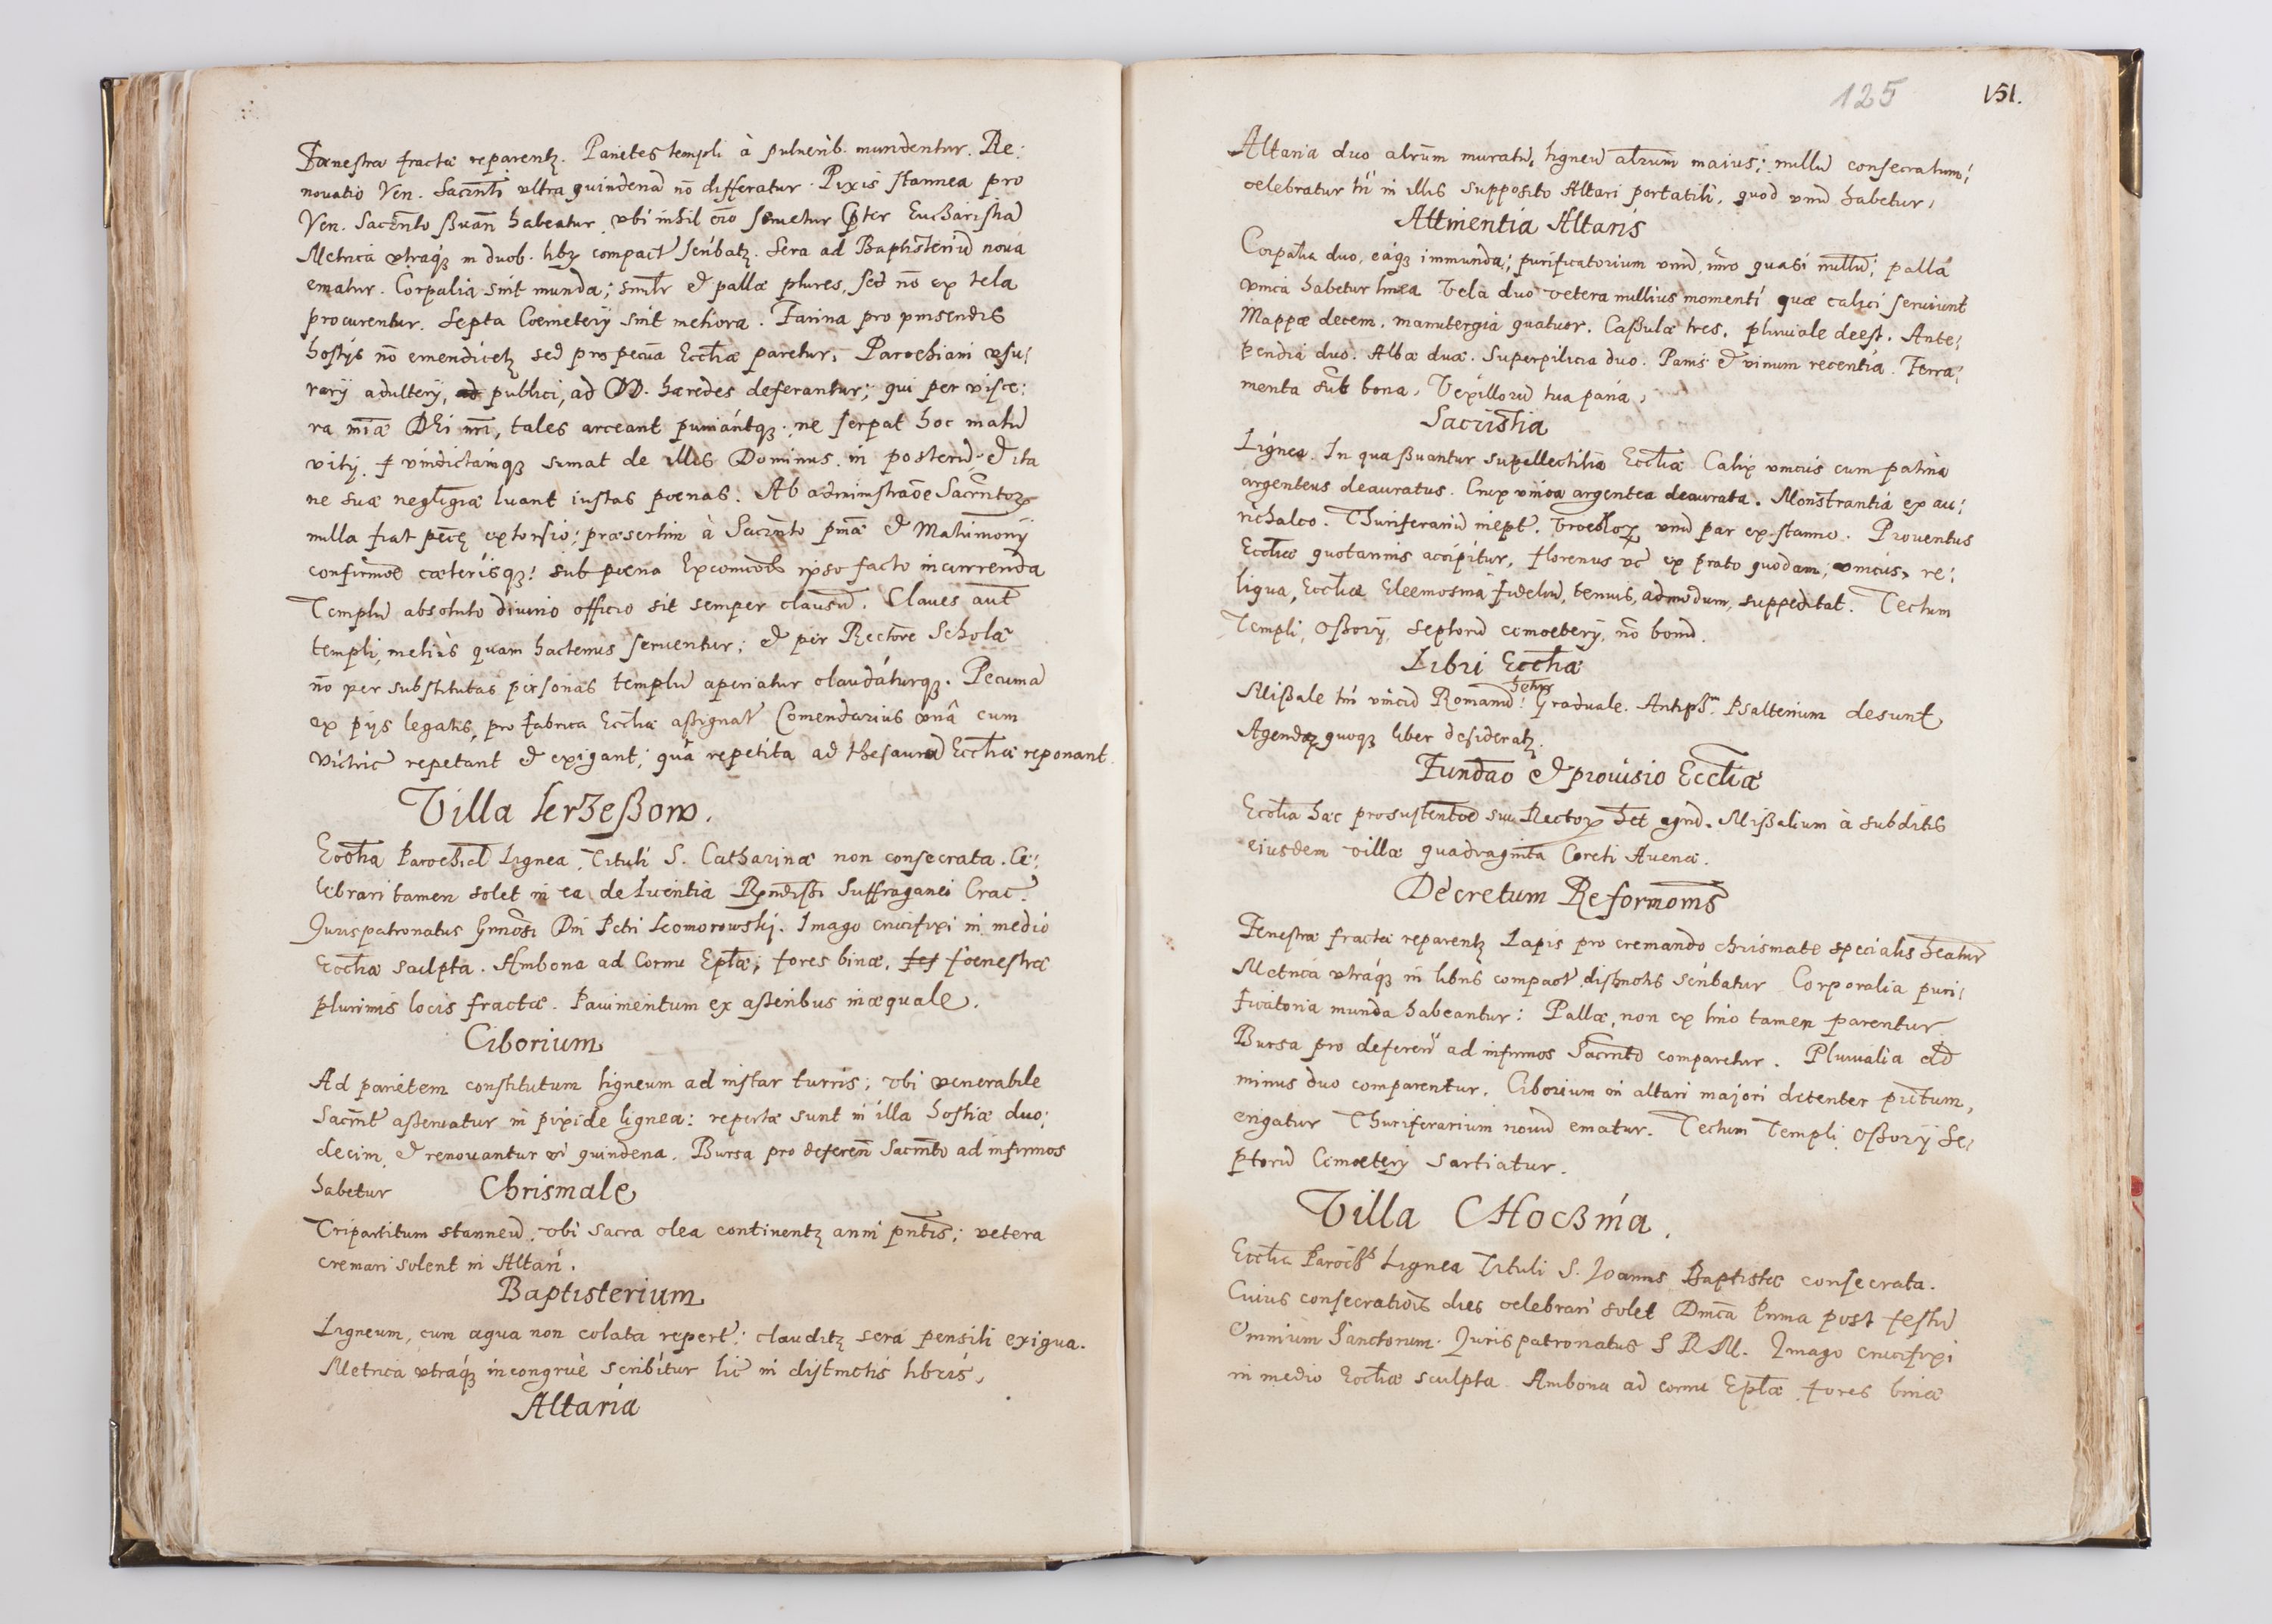 Fœnestræ fractæ reparentꝫ. Parietes templi à puluerib. mundentur. Re:
nouatio Ven. Sacm̄ti ultra quindenā nō differatur. Pixis stannea pro
Ven. Sacm̄to ßuan̄ habeatur, ubi nihil oīo seruetur p̄ter Eucharistiā
Metrica utraq́ꝫ in duob. libꝫ compact̄ scribatꝫ. Sera ad Baptisteriū noua
ematur. Corpalia sint munda; similr̄ et pallæ plures, sed nō ex tela
procurentur. Septa Cœmeterij sint meliora. Farina pro pinsendis
hostijs nō emendicetꝫ sed pro pecūa Eccl̄iæ paretur. Parochiani usu:
rarij adulterij, publici, ad DD. hæredes deferantur; qui per uisce:
ra mīæ DEi nr̄i, tales arceant puniántqꝫ: ne serpat hoc malū
vitij. uindictámqꝫ sumat de illis Dominus. in posterū; et ita
ne suæ negligīæ luant iustas pœnas. Ab administraōe Sacm̄toꝝ
nulla fiat pec̄ę extorsio; præsertim à Sacm̄to pn̄iæ et Matrimonij
confirmōe cæterisqꝫ: sub pœna Excomīcōis ipso facto incurrenda
Templū absoluto diuino officio sit semper clausū. Claues aūt
templi, meliùs quam hactenus seruentur; et per Rectorē Scholæ
nō per substitutas personas templū aperiatur claudáturqꝫ. Pecuniā
ex pijs legatis, pro fabrica Eccl̄iæ assignat̄ Comendarius unâ cum
uitric̄ repetant et exigant; quâ repetita ad thesaurū Eccl̄iæ reponant.
Villa Ierzeßow.
Eccl̄ia Parochial̄ Lignea, Tituli S. Catharinæ non consecrata. Ce:
lebrari tamen solet in ea de licentia Rn̄diss̄i Suffraganei Crac̄.
Jurispatronatus Gn̄rosi Dn̄i Petri Komorowskj. Imago crucifixi in medio
Eccl̄iæ sculpta. Ambona ad Cornu Epl̄æ; fores binæ, fœnestræ
plurimis locis fractæ. Pauimentum ex asseribus inæquale.
Ciborium
Ad parietem constitutum ligneum ad instar turris; ubi uenerabile
Sacm̄t̄ asseruatur in pixide lignea: repertæ sunt in illa hostiæ duo:
decim, et renouantur quindena. Bursa pro deferen̄ Sacm̄to ad infirmos
habetur Chrismale
Tripartitum stanneū, ubi sacra olea continentꝫ anni pn̄tis; uetera
cremari solent in Altari.
Baptisterium
Ligneum, cum aqua non colata repert̄: clauditꝫ serâ pensili exigua.
Metrica utráqꝫ incongruè scribitur lic̄ in distinctis libris,
Altaria
125 151.
Altaria duo alrūm muratū, ligneū alrūm maius; nullū consecratum;
celebratur tn̄ in illis supposito Altari portatili, quod unū habetur,
Attinentia Altaris
Corpalia duo, eáqꝫ immunda; purificatorium unū, imò quasi nullū; palla
unica habetur linea Vela duo uetera nullius momenti quæ calici seruiunt
Mappæ decem, manutergia quatuor. Caßulæ tres, pluuiale deest. Ante:
pendia duo. Albæ duæ. Superpilicia duo. Panis et uinum recentia. Ferra:
menta sūt bona. Vexilloꝝ tria paria.
Sacristia
Lignea. In qua ßuantur supellectilia Eccl̄iæ Calix unicus cum patina
argenteus deauratus. Crux unica argentea deaurata. Monstrantia ex au:
richalco. Thuriferariū inept̄. Vrceoloꝝ unū par ex stanno. Prouentus
Eccl̄iæ quotannis accipitur, florenus uc̄ ex prato quodam; unicus, re:
liqua, Eccl̄iæ Eleemosina fideliū, tenuis, admodum, suppeditat. Tectum
Templi, Oßorij, septorū cemoeterij, nō bonū.
Libri Eccl̄iæ
Mißale tn̄ unicū Romanū; uetus Graduale. Antiph.m Psalterium desunt
Agendaꝝ quoqꝫ liber desideratꝫ.
Fundaō et prouisio Eccl̄iæ
Eccl̄ia hæc pro sustentōe sui Rectoꝝ h̄et agrū. Mißalium à subditis
eiusdem uillæ quadraginta Coreti Auenæ.
Decretum Reformōnis
Fenestræ fractæ reparentꝫ Lapis pro cremando chrismate specialis h̄eatur
Metrica utráqꝫ in libris compact̄ distinctis scribatur Corporalia puri:
ficatoria munda habeantur: Pallæ, non ex lino tamen parentur
Bursa pro deferen̄ ad infirmos Sacm̄to comparetur. Pluuialia ad
minus duo comparentur. Ciborium in altari majori decenter pictum,
erigatur Thuriferarium nouū ematur. Tectum Templi Oßorij Se:
ptorū Cemoeterij sartiatur.
Villa CHoczńia.
Eccl̄ia Paroch.s Lignea Tituli S. Joannis Baptistæ consecrata.
Cuius consecrationis dies celebrari solet Dn̄ica Prima post festū
Omnium Sanctorum. Juris patronatus S R M. Imago crucifixi
in medio Eccl̄iæ sculpta. Ambona ad cornu Epl̄æ fores binæ